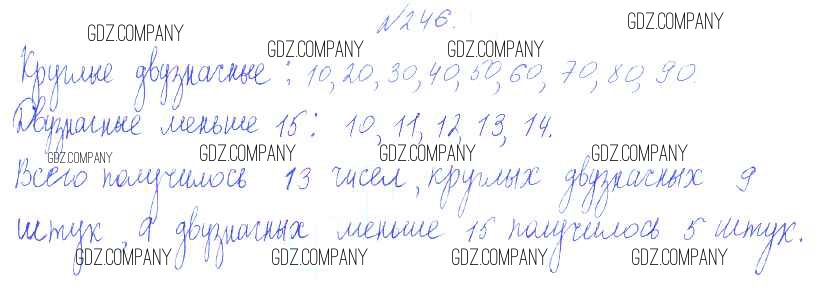 №246.
GDZ.COMPANY GDZ.COMPANY GDZ.COMPANY GDZ.COMPANY
Круглые двузначные: 10, 20, 30, 40, 50, 60, 70, 80, 90.
Двузначные меньше 15: 10, 11, 12, 13, 14.
GDZ.COMPANY GDZ.COMPANY GDZ.COMPANY GDZ.COMPANY
Всего получилось 13 чисел, круглых двузначных 9
штук, а двузначных меньше 15 получилось 5 штук.
GDZ.COMPANY GDZ.COMPANY GDZ.COMPANY GDZ.COMPANY